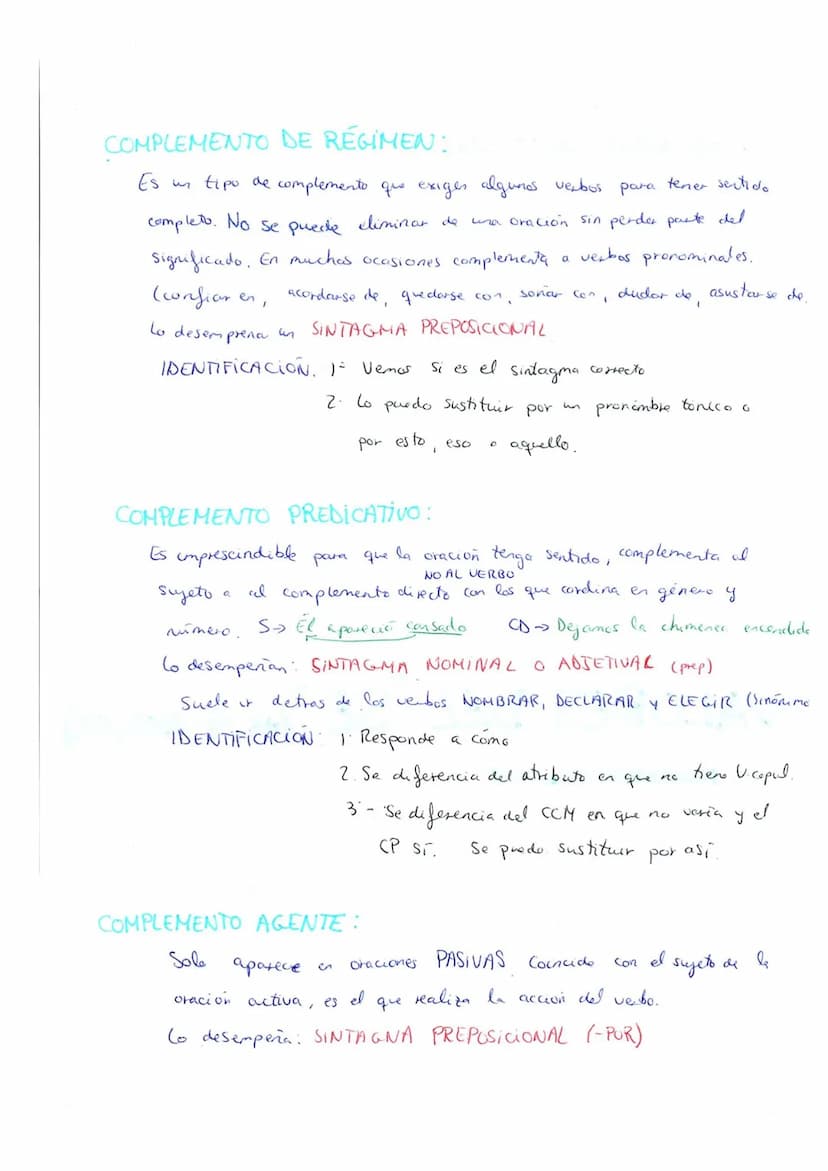 COMPLEMENTO DE RÉGIMEN:
Es un tipo de complemento que exigen algunos verbos para tener sentido
completo. No se puede eliminar de una oración sin perder parte del
significado. En muchas ocasiones complementa a verbos pronominales.
(confiar en, acordarse de, quedarse con, soñar con, dudar de, asustarse de.
Lo desempeña un SINTAGMA PREPOSICIONAL
IDENTIFICACIÓN. 1º Vemos si es el sintagma correcto
2. Lo puedo sustituir por un pronombre tónico o
por esto, eso o aquello.
COMPLEMENTO PREDICATIVO:
Es imprescindible para que la oración tenga sentido, complementa al
NO AL VERBO
sujeto o al complemento directo con los que cordina en género y
número. S→ Él apareció cansado CD→ Dejamos la chimenea encendida
Lo desempeñan: SINTAGMA NOMINAL O ADJETIVAL (prep)
Suele ir detras de los verbos NOMBRAR, DECLARAR y ELEGIR (Sinónimo
IDENTIFICACIÓN: 1. Responde a cómo
2. Se diferencia del atributo en que no tiene V copul.
3 - Se diferencia del CCM en que no varía y el
CP SÍ. Se puede sustituir por así.
COMPLEMENTO AGENTE:
Solo aparece en oraciones PASIVAS. Coincide con el sujeto de la
oración activa, es el que realiza la acción del verbo.
Lo desempeña: SINTAGNA PREPOSICIONAL (-POR)